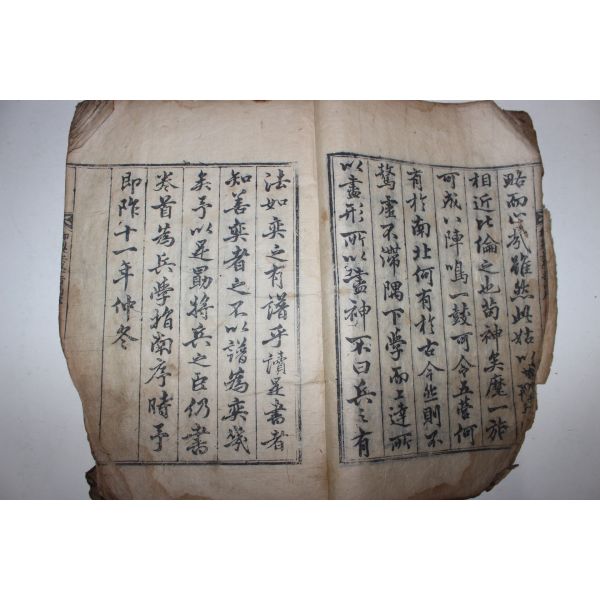 略而心哉雖然此姑以
相近比倫之也苟神矣麾一旅
可成八陣鳴一鼓可令五營何
有於南北何有於古今然則不
騖虛不滯隅下學而上達所
以盡形所以盡神不曰兵之有
法如奕之有譜乎讀是書者
知善奕者之不以譜為奕幾
矣予以是勖將兵之臣仍書
卷首為兵學指南序時予
即阼十一年仲冬